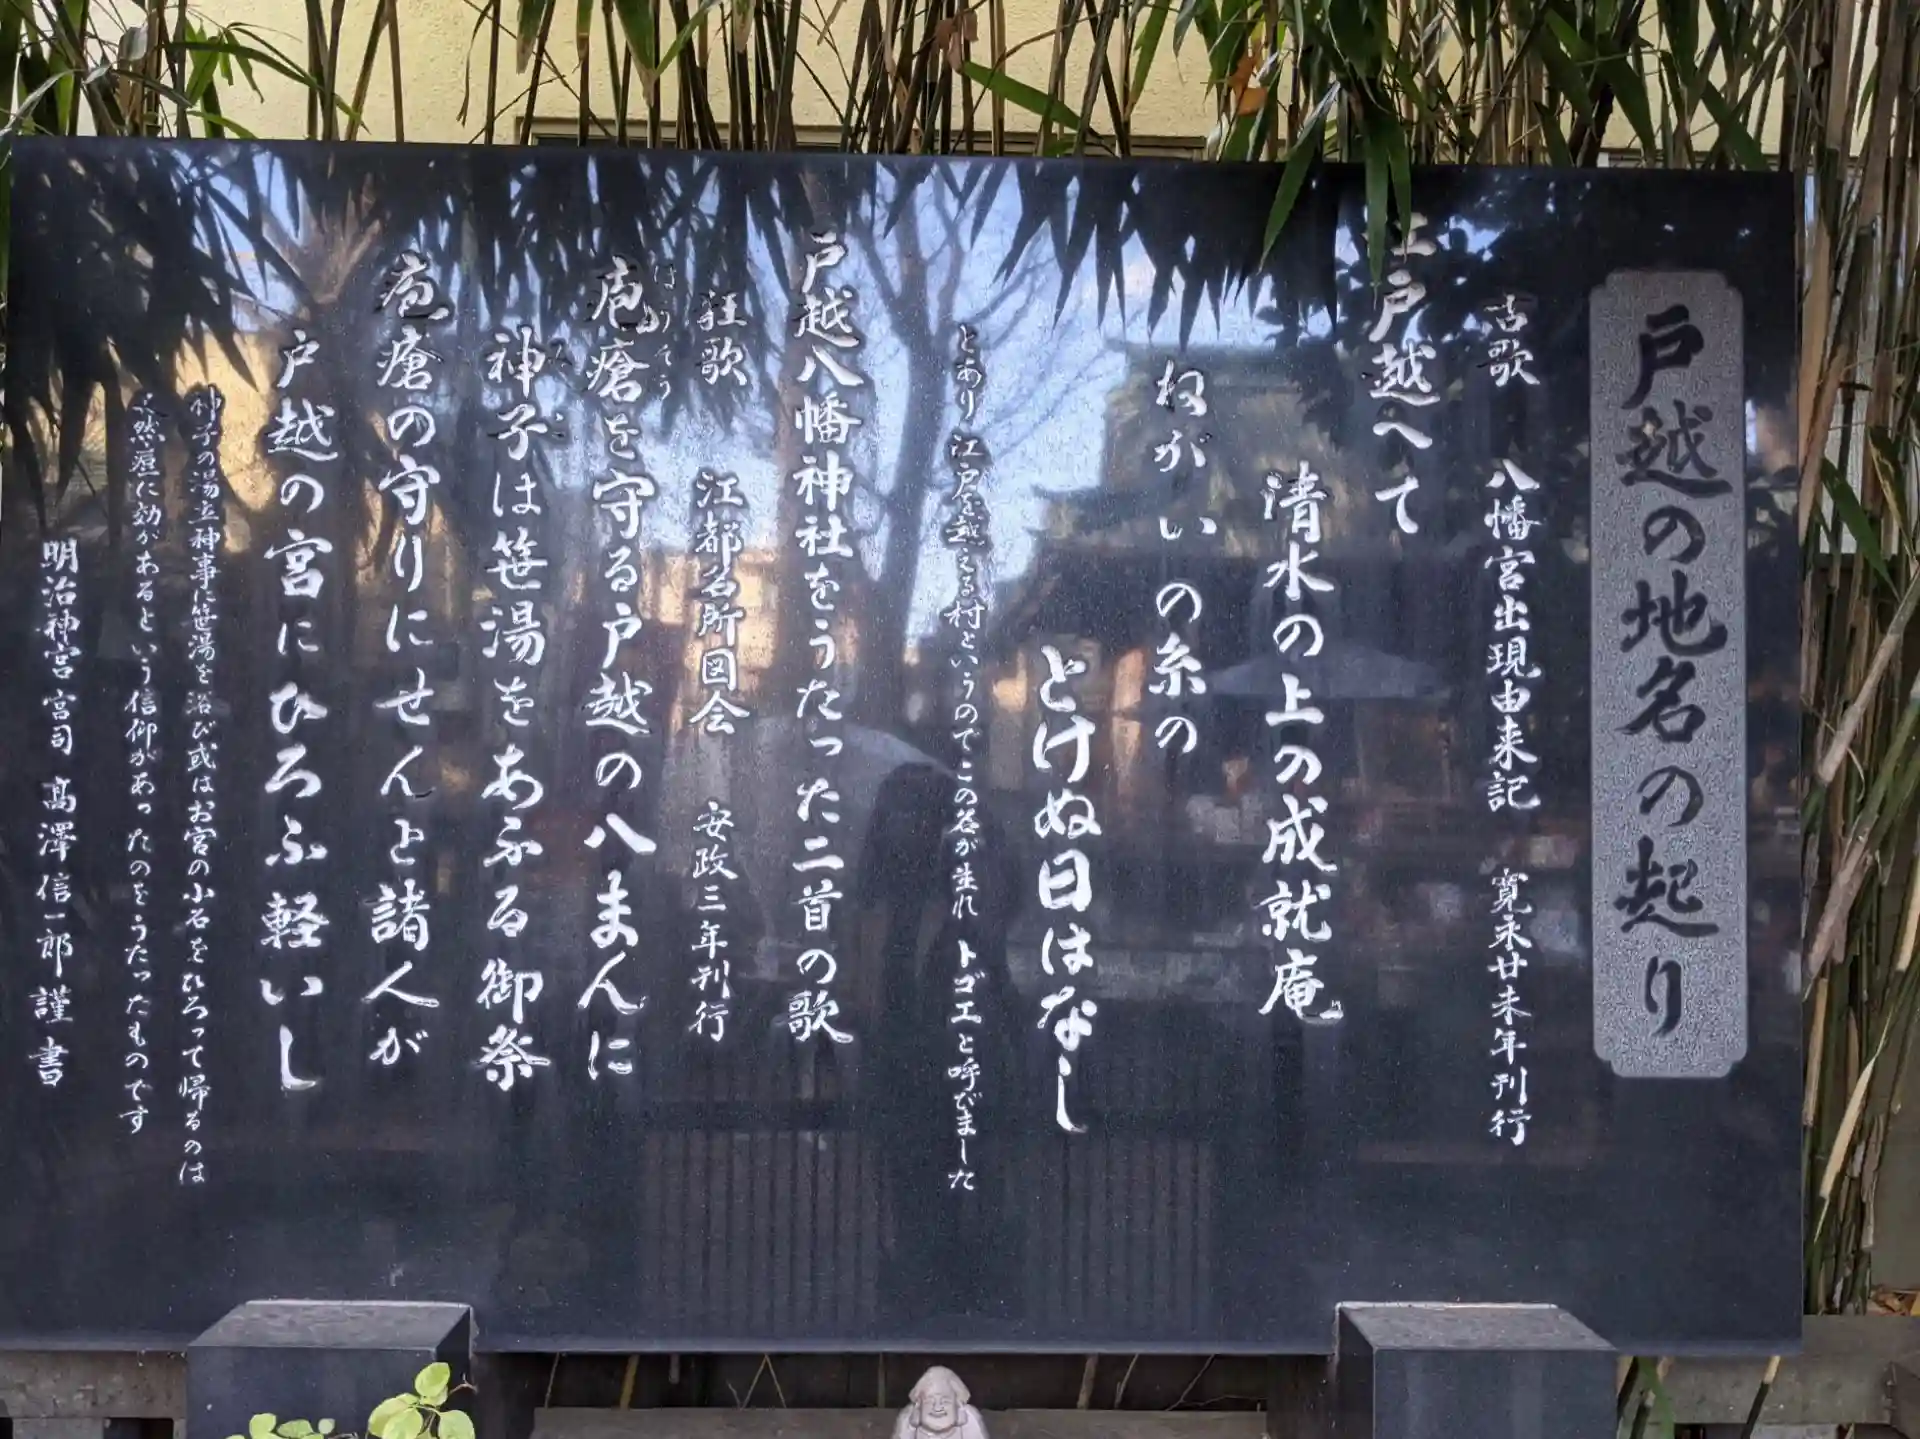 戸越の地名の起り
古歌 八幡宮出現由来記 寛永廿未年刊行
江戸越へて
清水の上の成就庵
ねがいの糸の
とけぬ日はなし
とあり江戸を越える村というのでこの名が生れトゴエと呼びました
戸越八幡神社をうたった二首の歌
狂歌 江都名所図会 安政三年刊行
疱瘡を守る戸越の八まんに
ほうそう
神子は笹湯をあふる御祭
みこ
疱瘡の守りにせんと諸人が
戸越の宮にひろふ軽いし
神子の湯立神事に笹湯を浴び或はお宮の小石をひろって帰るのは
天然痘に効があるという信仰があったのをうたったものです
明治神宮宮司 髙澤信一郎謹書